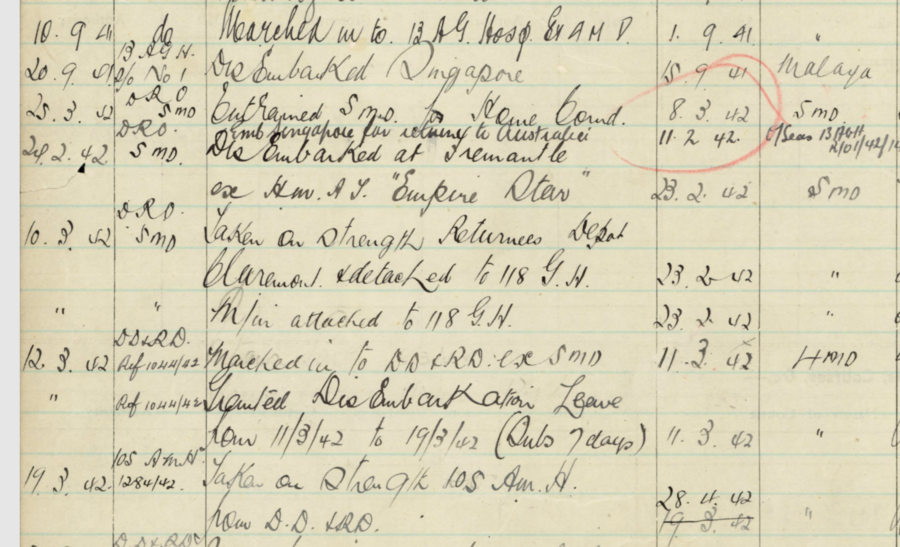 10. 9 41 do Marched in to. 13 A.G. Hosp. Ex A M D. 1. 9. 41 "
13 A.G.H.
20. 9. 41 No 1 DisEmbarked Singapore 15. 9. 41 Malaya
D R O
25. 3. 42 5 MD Entrained 5 MD. for Home Comd. 8. 3. 42 5 MD
Emb Singapore for returning to Australia 11. 2 42.
D R O.
24. 2. 42 5 MD. DisEmbarked at Fremantle
ex Hm. A T. "Empire Star" 23. 2. 42 5 MD
D R O.
10. 3. 42 5 MD Taken on Strength Returnees Depot
Claremont & detached to 118 G.H. 23. 2 42 "
" " M/in attached to 118 G.H. 23. 2. 42 "
DD&RD.
12. 3. 42 Ref 1044/42 Marched in to DD&RD. ex 5 MD 11. 3. 42 4 MD
" Ref 1044/42 Granted DisEmbarkation Leave
from 11/3/42 to 19/3/42 (Subs 7 days) 11. 3. 42 "
105 A.M.H
19. 3 42. 1284/42. Taken on Strength 105 Am. H.
28. 4. 42
from D.D. &RD. 19 3. 42 "
DD&RD